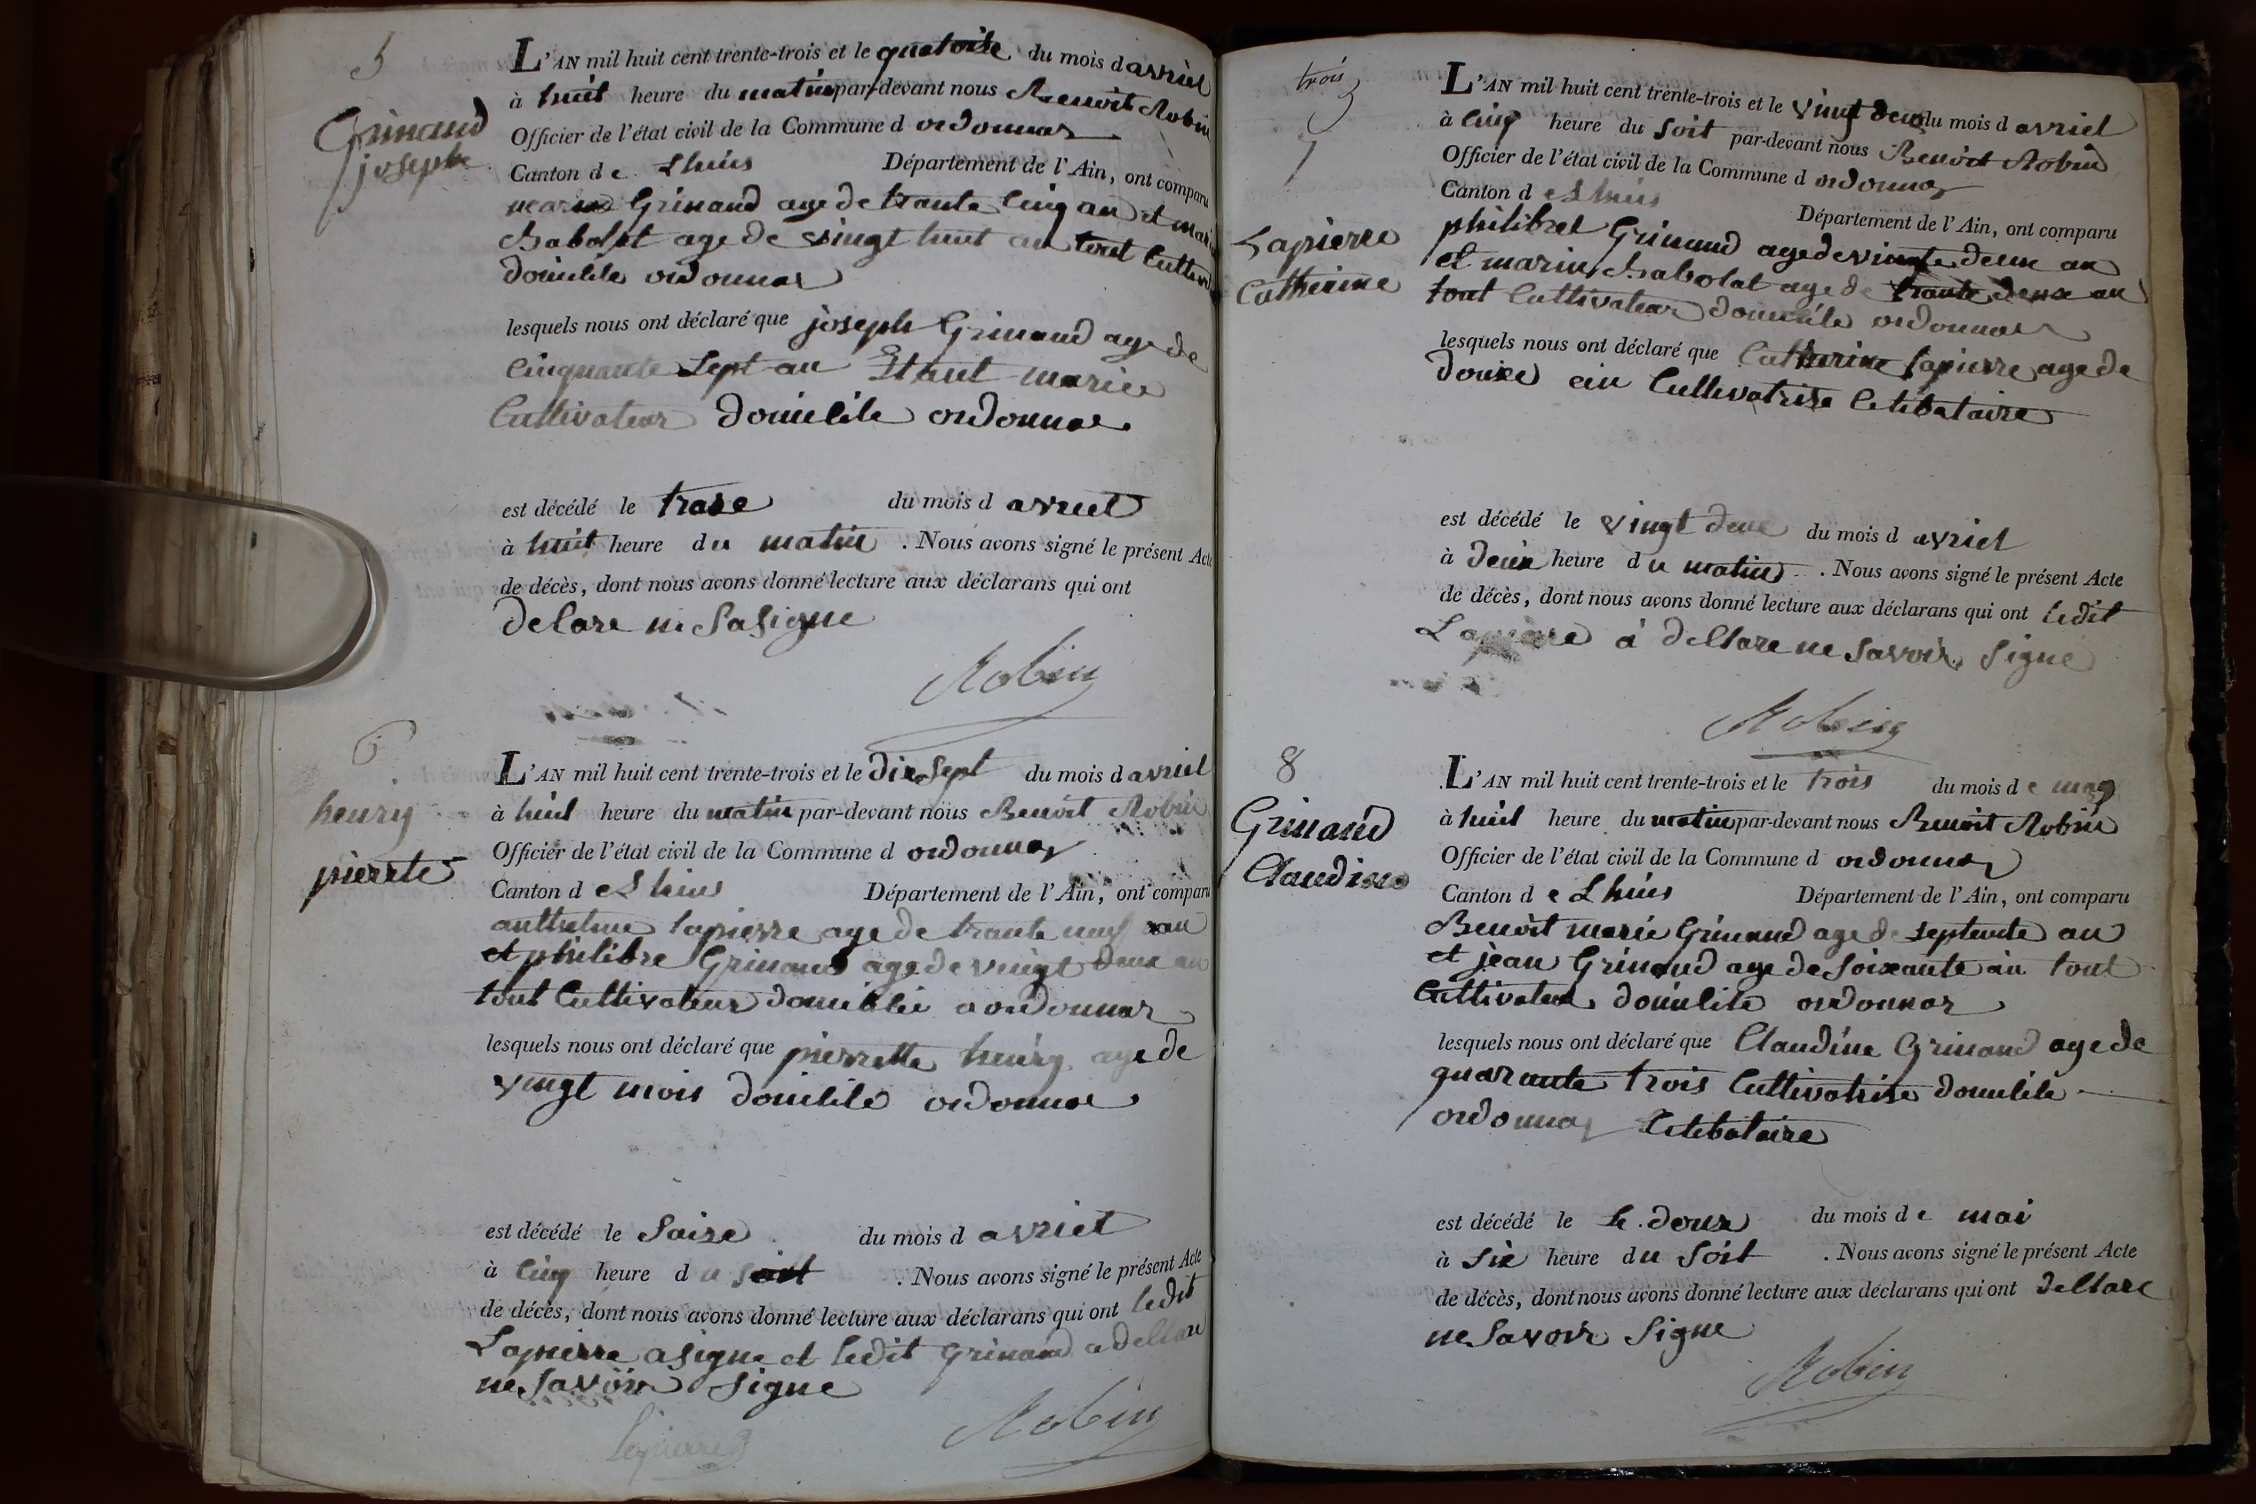 5
Grinand
joseph
L'AN mil huit cent trente-trois et le quatoise du mois d avriel
à huit heure du matin par-devant nous Benoit Robin
Officier de l'état civil de la Commune d ordonnas
Canton de Lhuis Département de l'Ain, ont comparu
Grinand age de trante cinq an et
Babolat age de vingt huit an tout
domilile ordonnas
lesquels nous ont déclaré que joseph Grinand age de
cinquante sept an Etant marie
Cultivateur domilile ordonnas
est décédé le trase du mois d avriel
à huit heure du matin . Nous avons signé le présent Acte
de décès, dont nous avons donné lecture aux déclarans qui ont
delare ne Sasigne
Robin
6
henry
pierrete
L'AN mil huit cent trente-trois et le dix Sept du mois d avriel
à huit heure du matin par-devant nous Benoit Robin
Officier de l'état civil de la Commune d ordonnas
Canton d e Lhuis Département de l'Ain, ont comparu
anthelme Lapierre age de trante neuf an
et philibre Grinand age de vingt deux an
tout Cultivateur a ordonnas
lesquels nous ont déclaré que pierrette henry age de
vingt mois domilile ordonnas
est décédé le Saise du mois d avriel
à cinq heure d u soit . Nous avons signé le présent Acte
de décès, dont nous avons donné lecture aux déclarans qui ont ledit
Lapierre a signe et ledit Grinand a dellare
ne Savoir Signe
Robin
trois
7
Lapierre
Catherine
L'AN mil huit cent trente-trois et le vingt deux du mois d avriel
à cinq heure du soit par-devant nous Benoit Robin
Officier de l'état civil de la Commune d ordonnas
Canton d e Lhuis Département de l'Ain, ont comparu
philibret Grinand age de deux an
et marin Babolat age de trante deux an
tout Cultivateur domicile ordonnas
lesquels nous ont déclaré que Catherine Lapierre age de
douze ein Cultivatrise Celibataire
est décédé le vingt deux du mois d avriel
à deux heure d u matin . Nous avons signé le présent Acte
de décès, dont nous avons donné lecture aux déclarans qui ont ledit
à dellare ne Savoir Signe
Robin
8
Grinand
Claudine
L'AN mil huit cent trente-trois et le trois du mois d e may
à huit heure du matin par-devant nous Benoit Robin
Officier de l'état civil de la Commune d ordonnas
Canton d e Lhuis Département de l'Ain, ont comparu
Benoit marie Grinand age de septente an
et jean Grinand age de soixante an tout
Cultivateur domilile ordonnas
lesquels nous ont déclaré que Claudine Grinand age de
quarante trois Cultivatrise domilile
ordonnas Celibataire
est décédé le le deux du mois d e mai
à six heure d u soit . Nous avons signé le présent Acte
de décès, dont nous avons donné lecture aux déclarans qui ont dellare
ne Savoir Signe
Robin